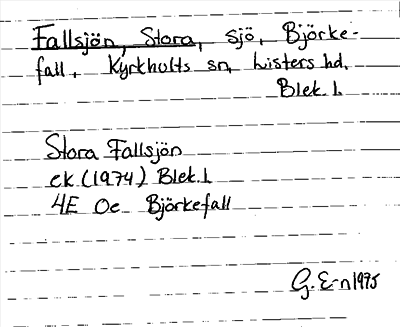 Fallsjön, Stora, sjö, Björke-
fall, Kyrkhults sn, Listers hd,
Blek. l.
Stora Fallsjön
ek (1974) Blek. l
4E Oe Björkefall
G. E-n 1975